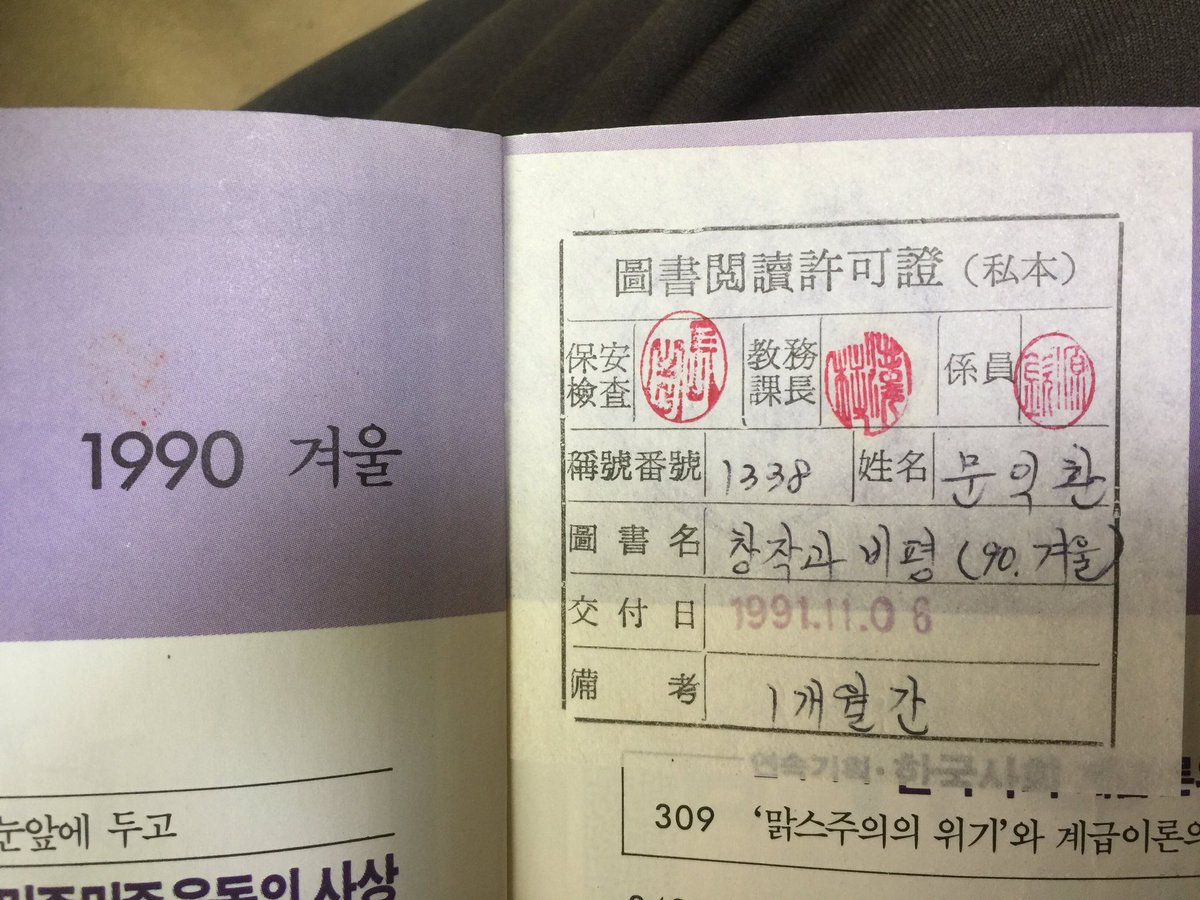 1990 겨울
눈앞에 두고
민족민주운동의 사상
圖書閲讀許可證 (私本)
保安檢查 教務課長 係員
稱號番號 1338 姓名 문익환
圖書名 창작과 비평 (90. 겨울)
交付日 1991.11.06
備考 1개월간
연속기획·한국사회
309 '맑스주의의 위기'와 계급이론의